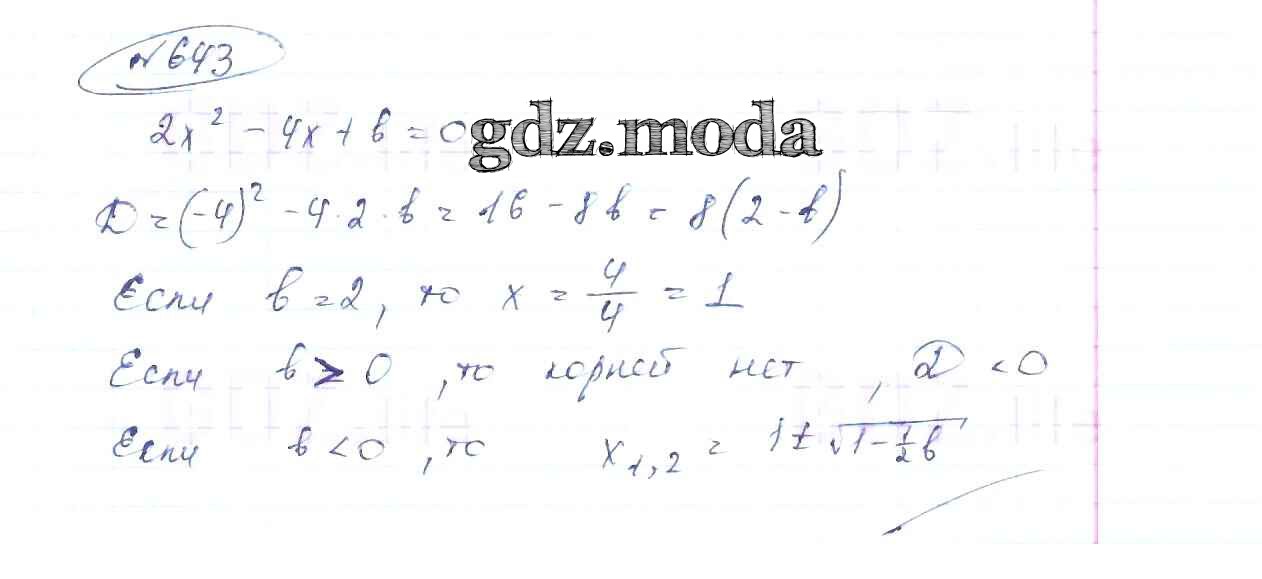 №643
2x² - 4x + b = 0
gdz.moda
D = (-4)² - 4·2·b = 16 - 8b = 8(2 - b)
Если b = 2, то x = 4/4 = 1
Если b > 0, то корней нет, D < 0
Если b < 0, то x₁,₂ = 1 ± √(1 - 1/2 b)